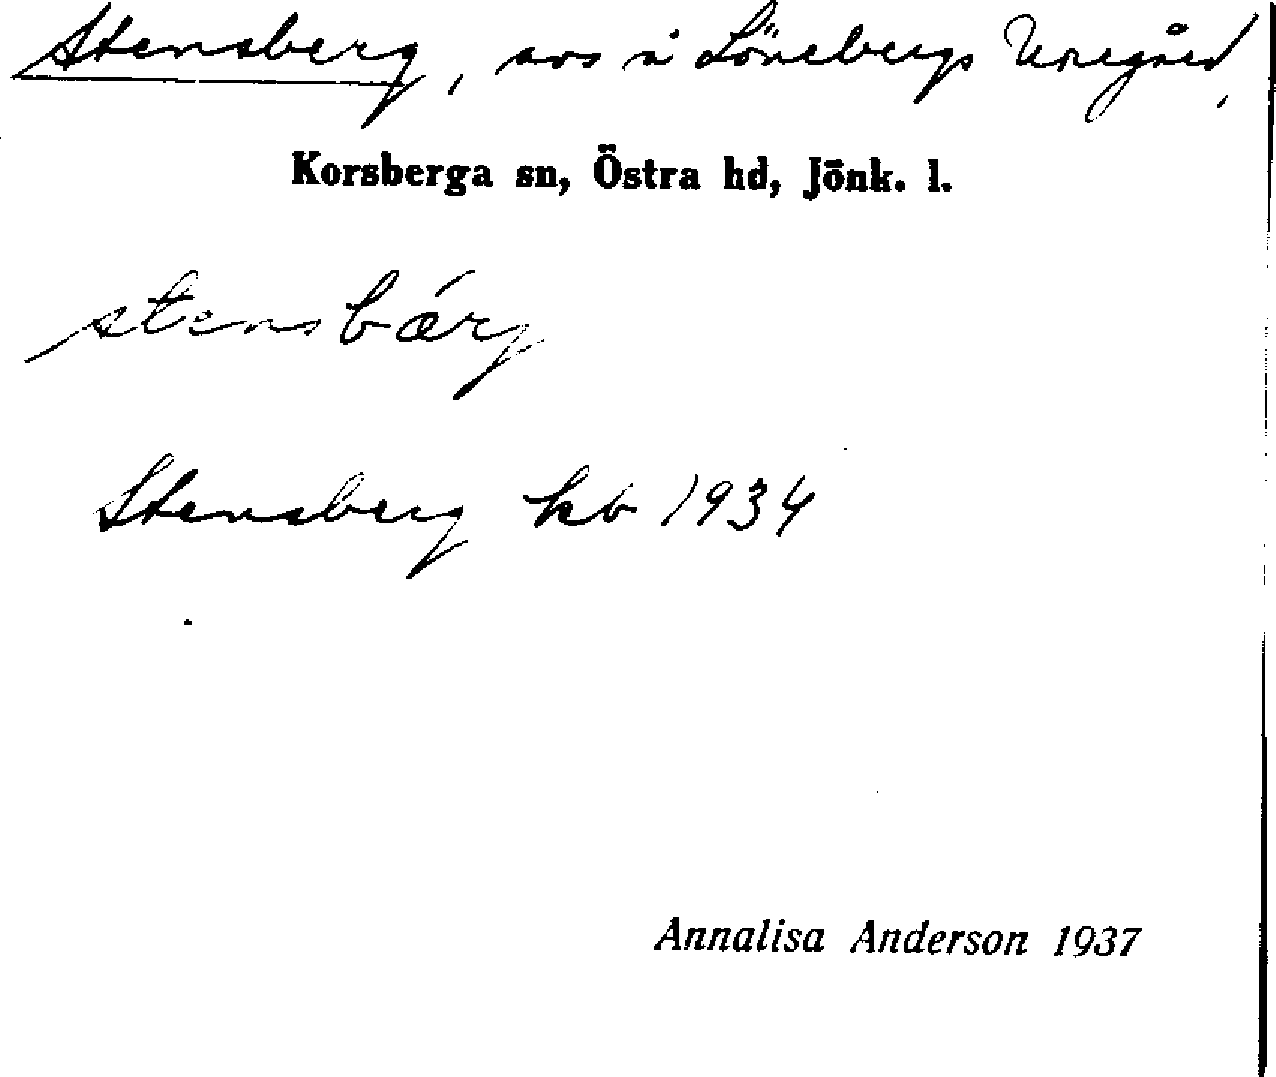 Stensberg, avs å Lönebergs Uregård,
Korsberga sn, Östra hd, Jönk. l.
stensbǽrj
Stensberg kb 1934
Annalisa Anderson 1937